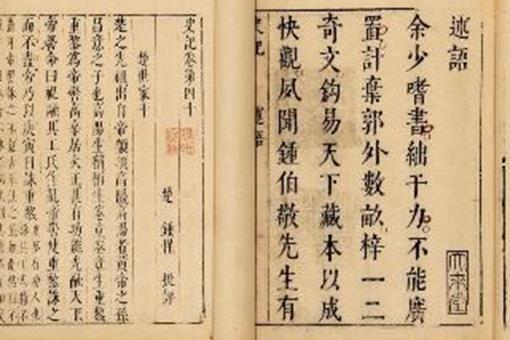 述語
大來堂
余少嗜書絀于力不能廣
置計棄郭外數畝梓一二
奇文鈎易天下藏本以成
快觀夙聞鍾伯敬先生有
史記
史記卷第四十
楚世家十
楚 鍾惺 批評
楚之先祖出自帝顓頊高陽高陽者黃帝之孫
昌意之子也高陽生稱稱生卷章卷章生重黎
重黎爲帝嚳高辛居火正甚有功能光融天下
帝嚳命曰祝融共工氏作亂帝嚳使重黎誅之
而不盡帝乃以庚寅日誅重黎